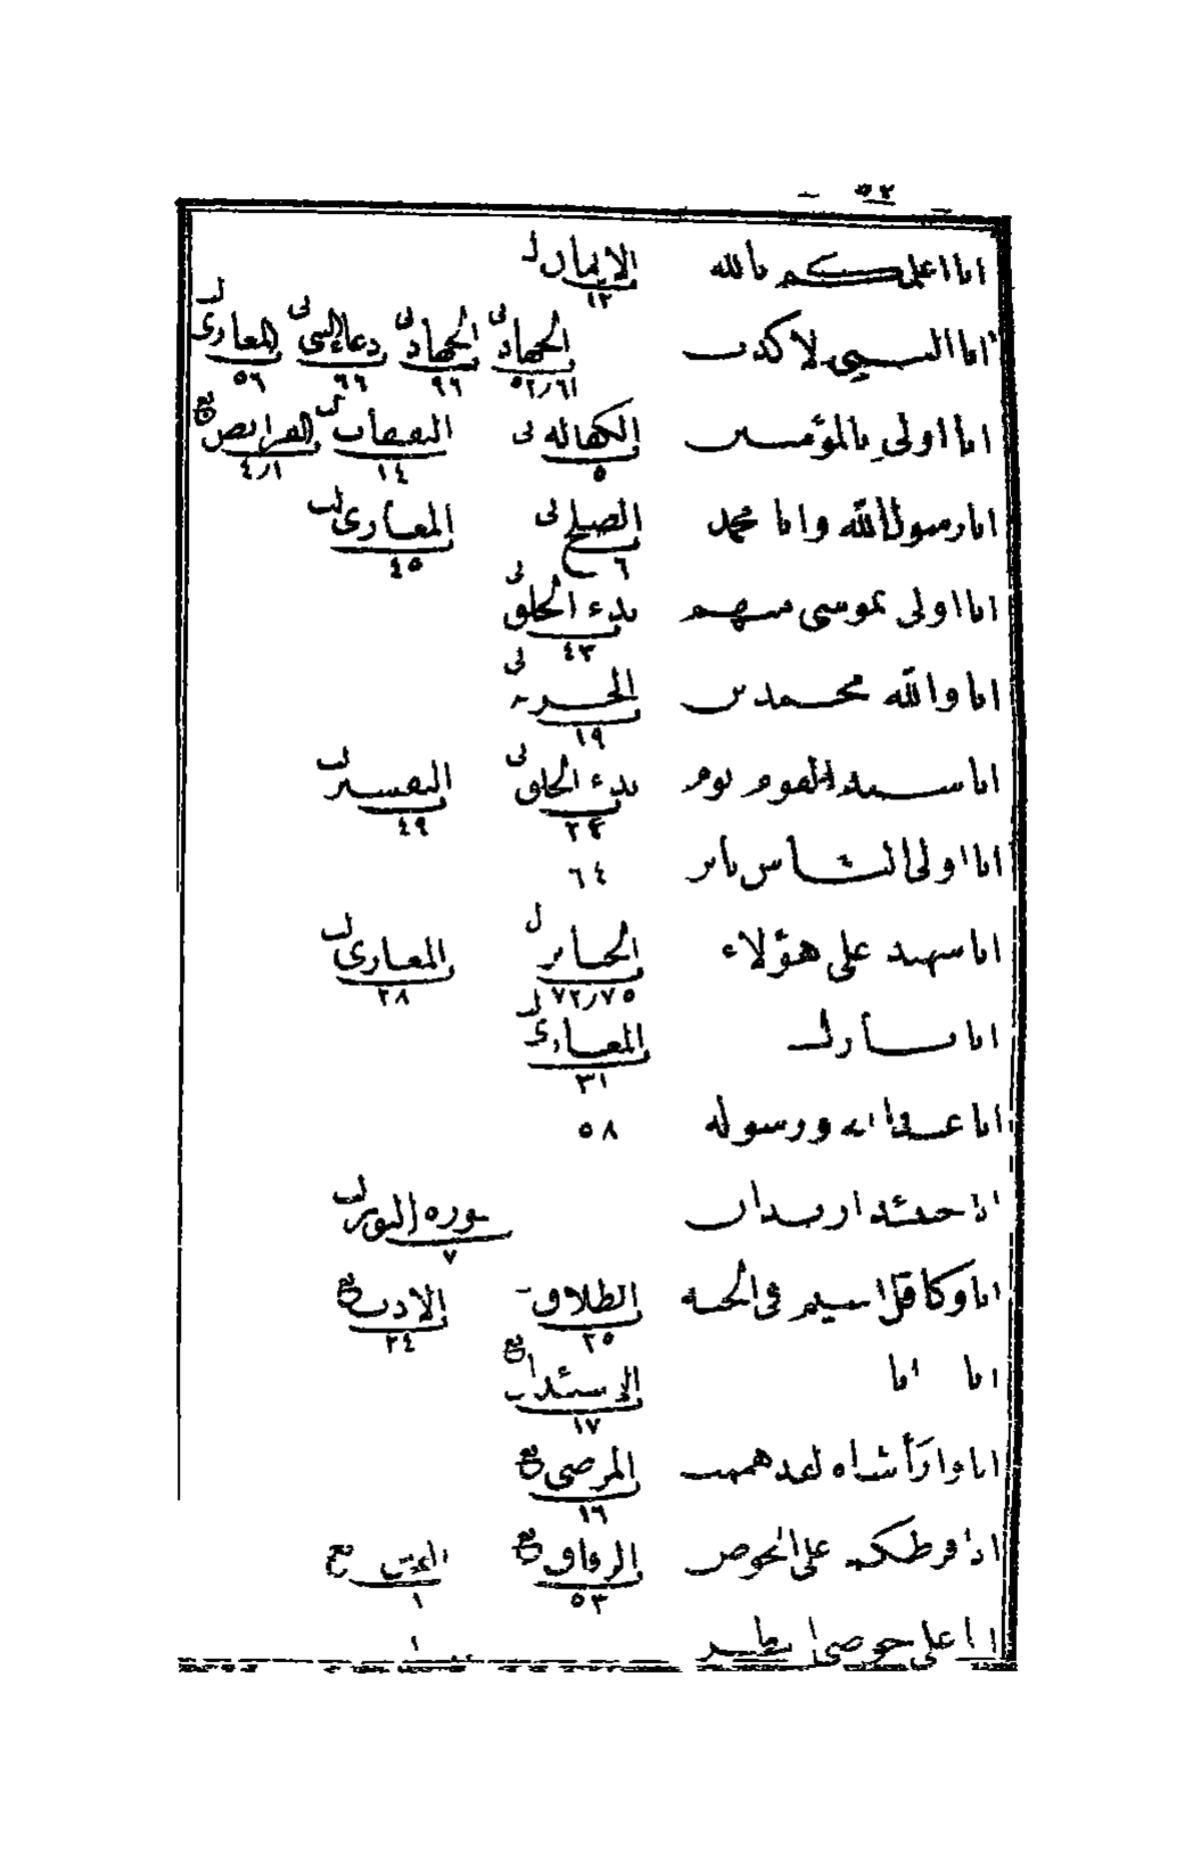 ٥٢
انا اعلمكم بالله الايمان ل
١٢
انا النبي لا كذب الجهاد لى الجهاد لى دعاء النبي لى المغازى لب
٥٢/٦١ ٩٦ ٦٦ ٥٦
انا اولى بالمؤمنين الكفاله لى النفقات لب الفرائض بع
٥ ١٤ ٤/١
انا رسول الله وانا محمد الصلح لى المغازى لب
٦ ٤٥
انا اولى بموسى منهم بدء الخلق لى
٤٣
انا والله محمد بن الجزيه لى
١٩
انا سيد القوم يوم بدء الخلق لى التفسير لب
٤٩
انا اولى الناس بابن ٦٤
انا شهيد على هؤلاء الجنائز ل المغازى لب
٧٢/٧٥ ٢٨
انا المغازى لب
٣١
انا عبد الله ورسوله ٥٨
انا حينئذ اريد ان سوره النور لب
٧
انا وكافل اليتيم فى الجنه الطلاق الادب بع
٢٥ ٢٤
انا انا الاستئذان بع
١٧
انا وارأساه لقد هممت المرضى بع
١٦
انا فرطكم على الحوض الرقاق بع الفتن بع
٥٣ ١
انا على حوضى انتظر ١